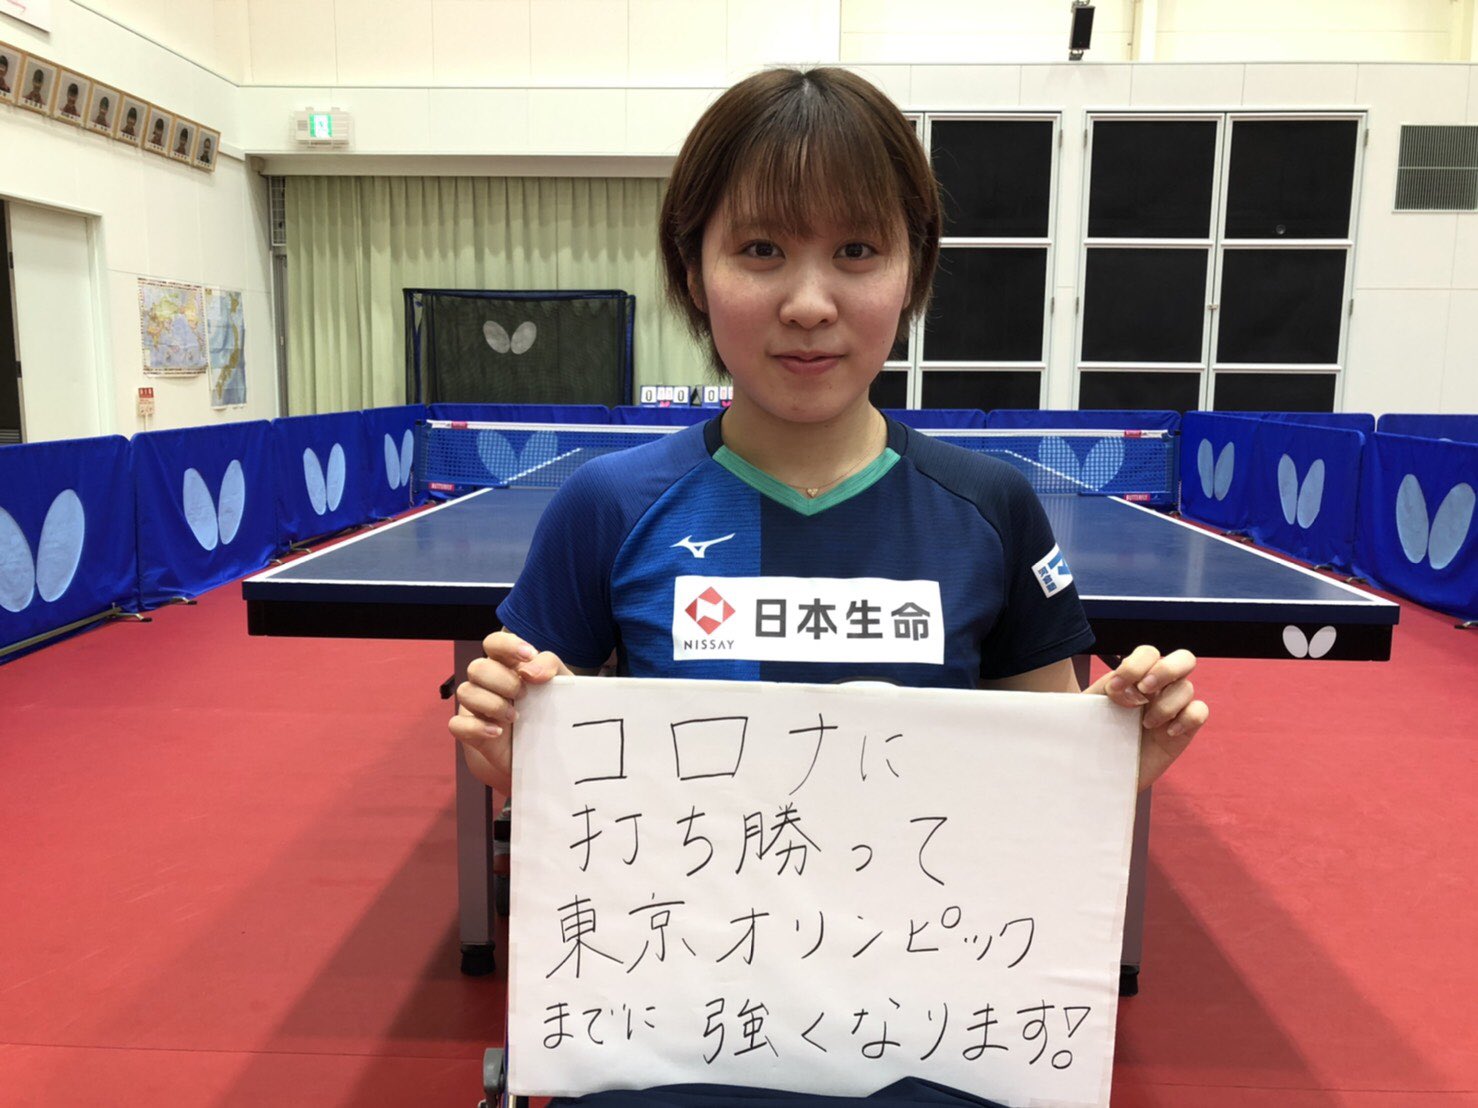 NISSAY 日本生命
コロナに
打ち勝って
東京オリンピック
までに 強くなります!
BUTTERFLY